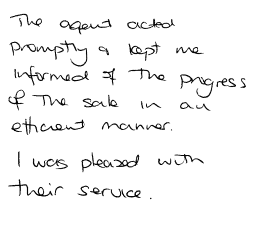 The agent acted
promptly & kept me
informed of the progress
of the sale in an
efficient manner.
I was pleased with
their service.